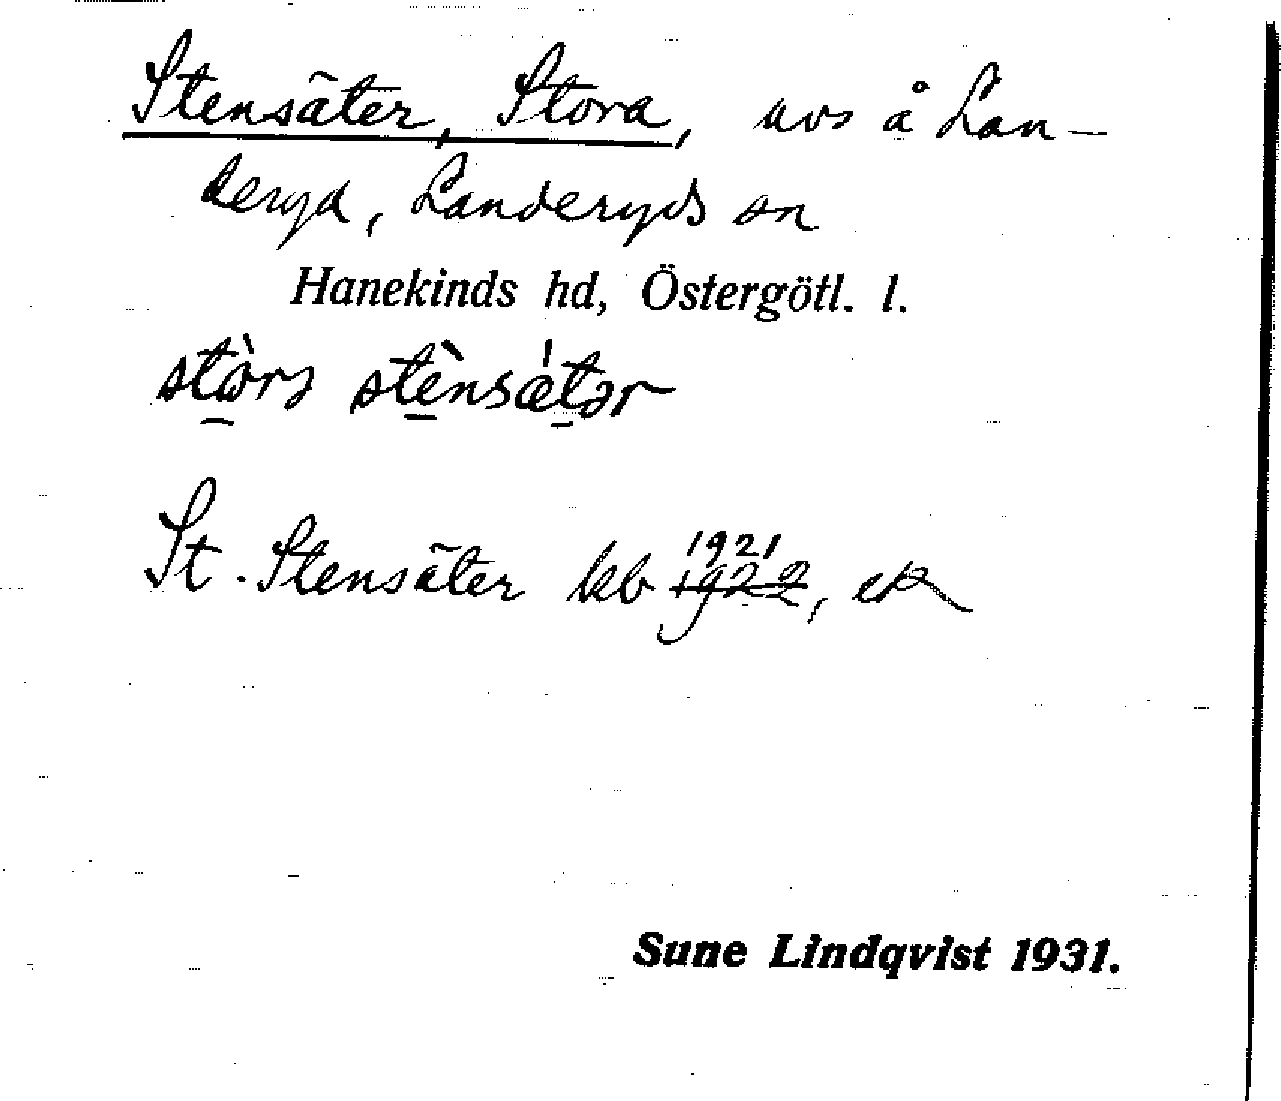 Stensäter, Stora, avs å Lan-
deryd, Landeryds sn
Hanekinds hd, Östergötl. l.
stὼrɔ stènsǽtər
St. Stensäter kb 1921 1922, ek
Sune Lindqvist 1931.